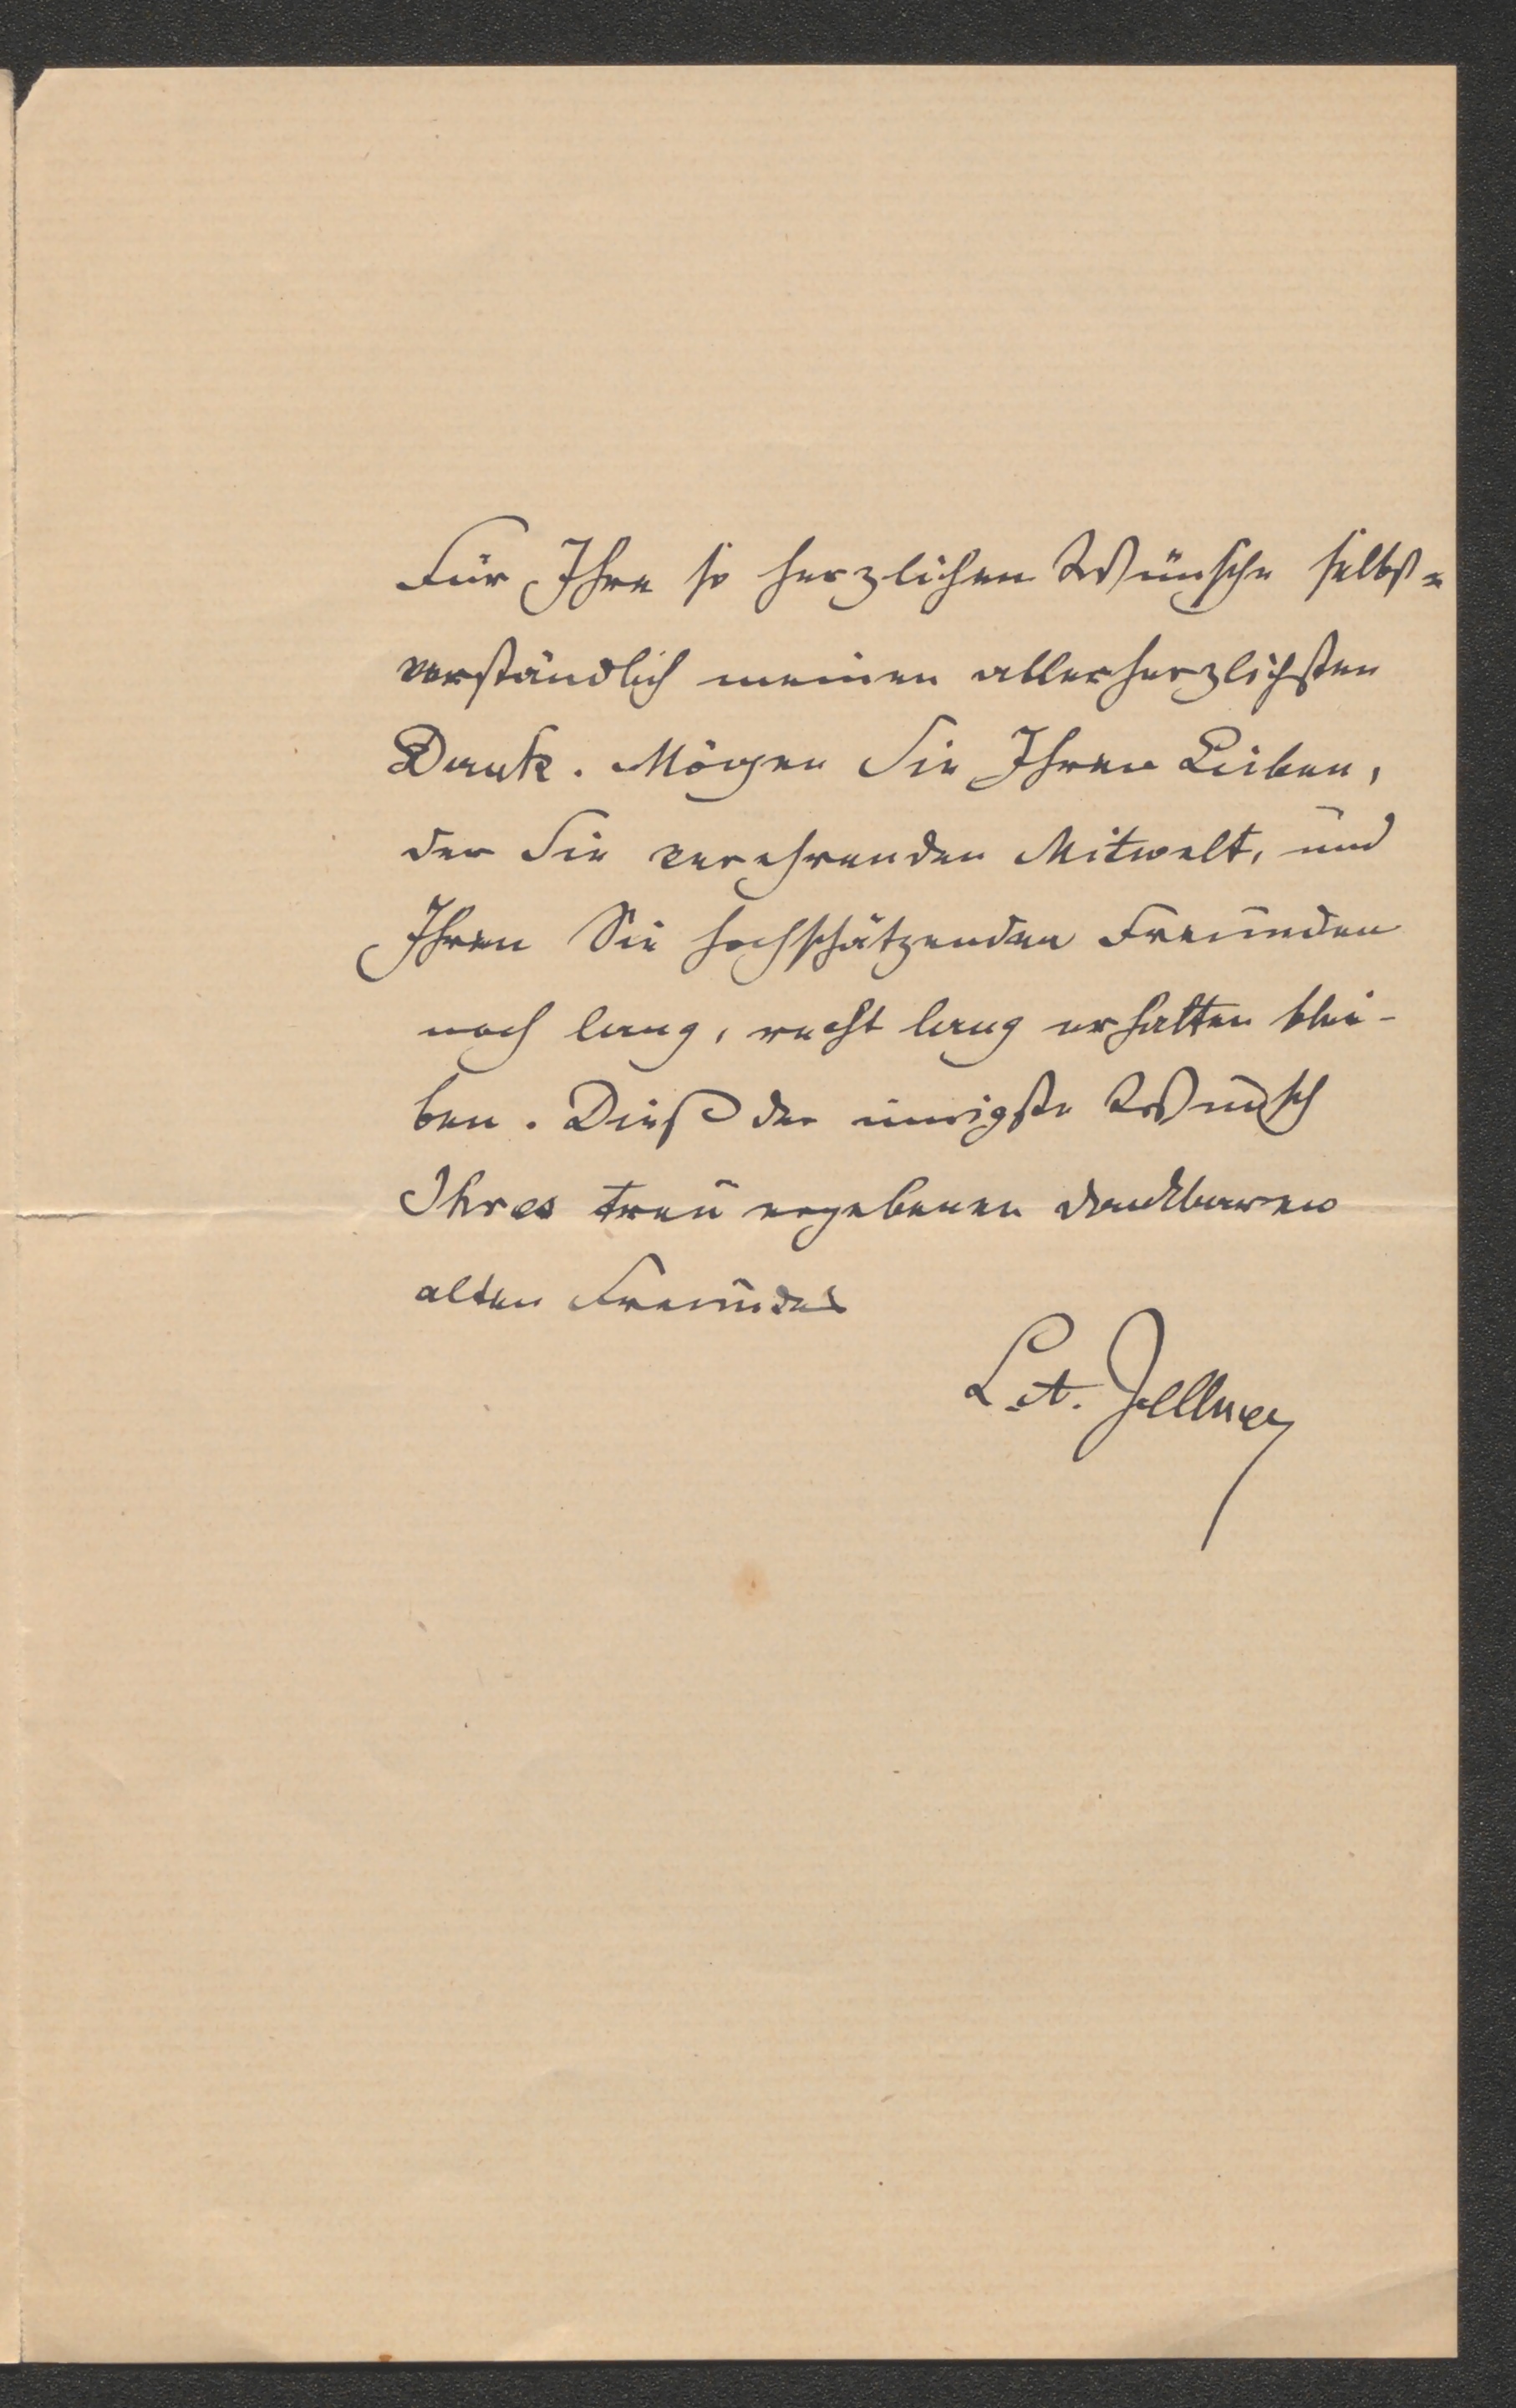 Für Ihre so herzlichen Wünsche selbst=
verständlich meinen allerherzlichsten
Dank. Mögen Sie Ihren Lieben,
der Sie verehrenden Mitwelt, und
Ihren Sie hochschätzenden Freunden
noch lang, recht lang erhalten blei-
ben. Dieß der innigste Wunsch
Ihres treu ergebenen dankbaren
alten Freundes
L. A. Zellner